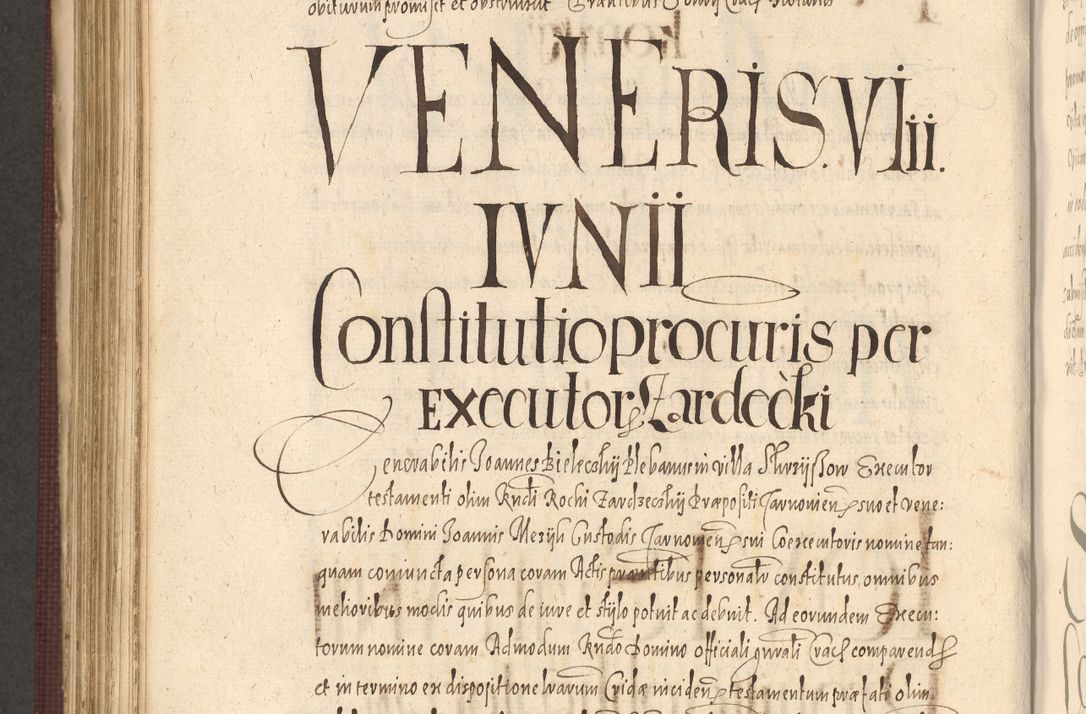 obiturum promisit et obstrinxit
VENERIS. VIII.
IVNII
Constitutio procuris per
executor Zardecki
Venerabilis Joannes Bieleczkij Plebanus in villa Skrzyssow Executor
testamenti olim Rndi Rochi Zardzeczkij Præpositi Tarnowien suo et vene:
rabilis Domini Joannis Mezijk Custodis Tarnowien sui Coexecutoris nomine tan:
quam coniuncta persona coram Actis præsentibus personalr constitutus, omnibus
melioribus modis quibus de iure et stylo potuit ac debuit. Ad eorundem Execu:
torum nomine coram Admodum Rndo Domino officiali gnrali Crac comparend
et in termino ex dispositione lrarum Cridæ inciden testamentum præfati olim